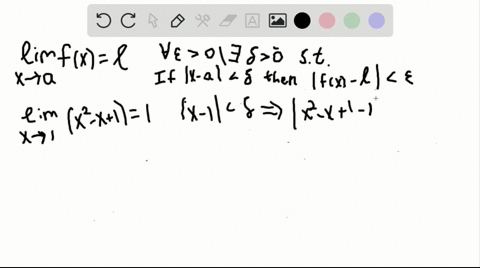 lim f(x) = l ∀ε > 0 ∃ δ > 0 s.t.
x→a If |x-a| < δ then |f(x) - l| < ε
lim (x²-x+1) = 1 |x-1| < δ ⇒ |x²-x+1-1
x→1